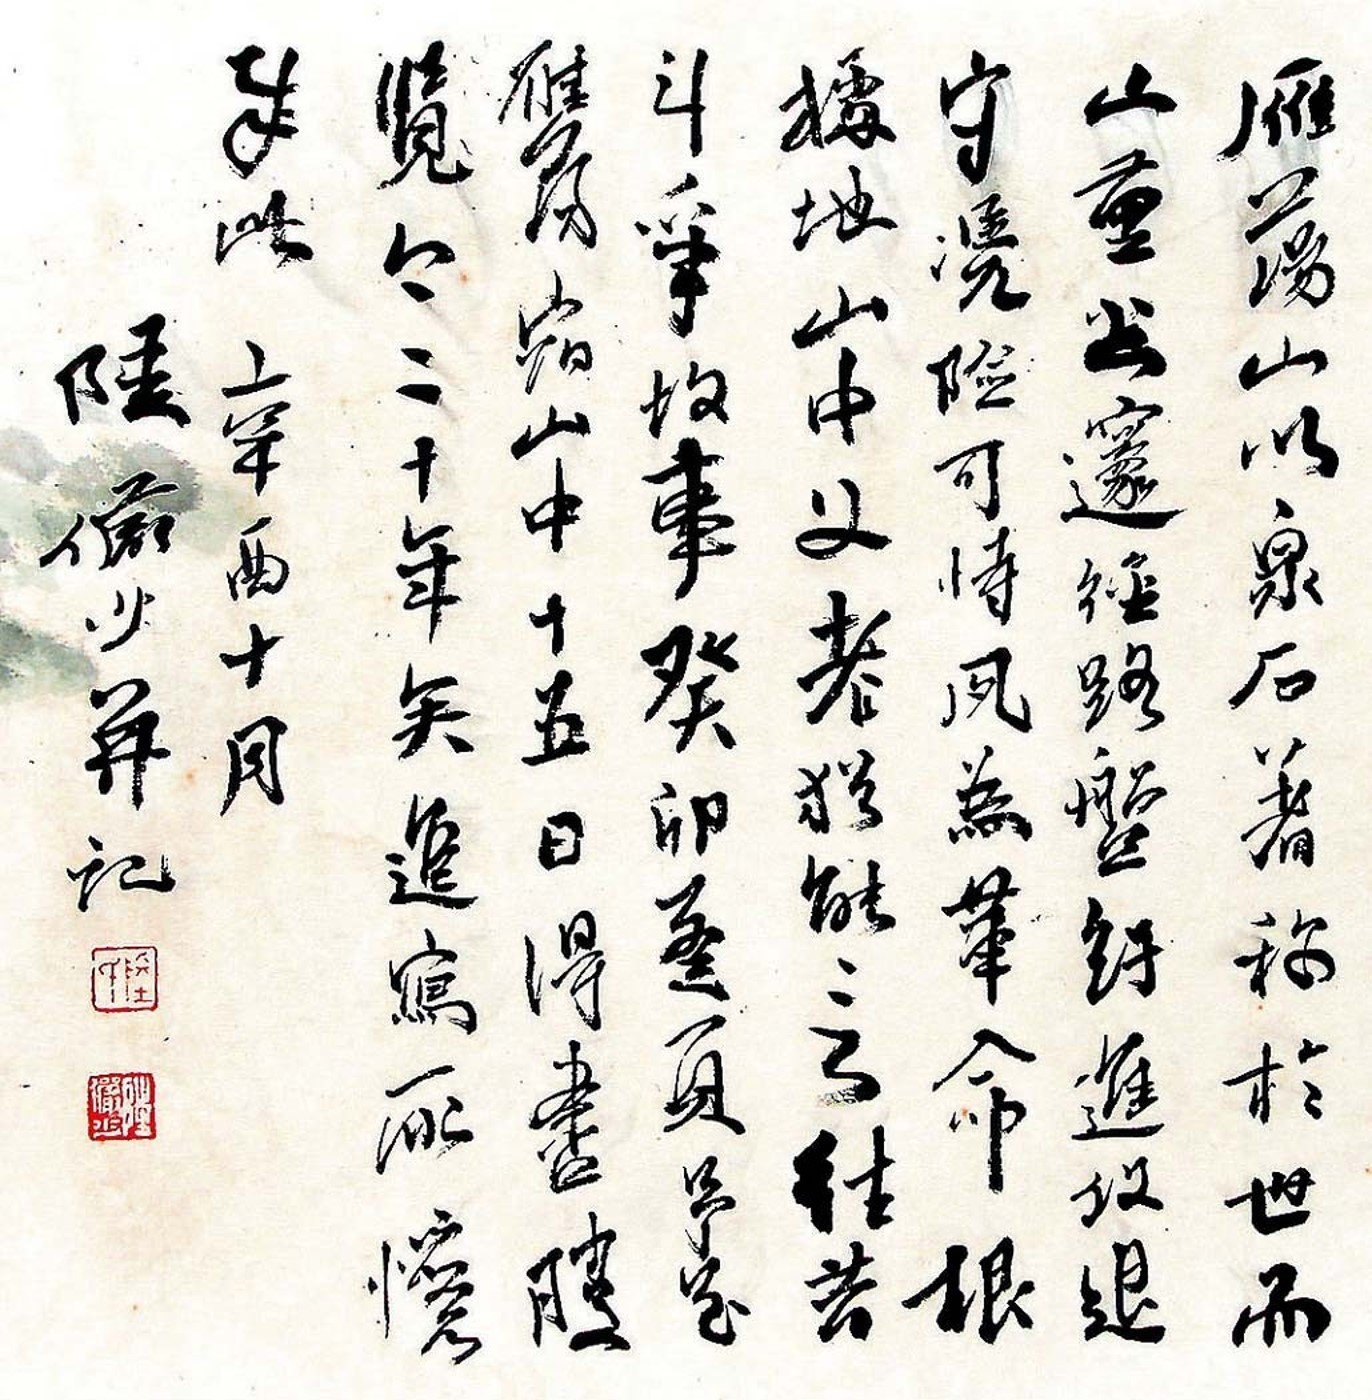 雁蕩山以泉石著称於世而
山重邃徑路盤紆進攻退
守憑險可恃夙為革命根
據地山中父老猶能言往昔
斗爭故事癸卯盛夏予登
雁蕩宿山中十五日得盡勝
覽今二十年矣追寫所憶
此 辛酉十月
陸儼少并記
陸儼少